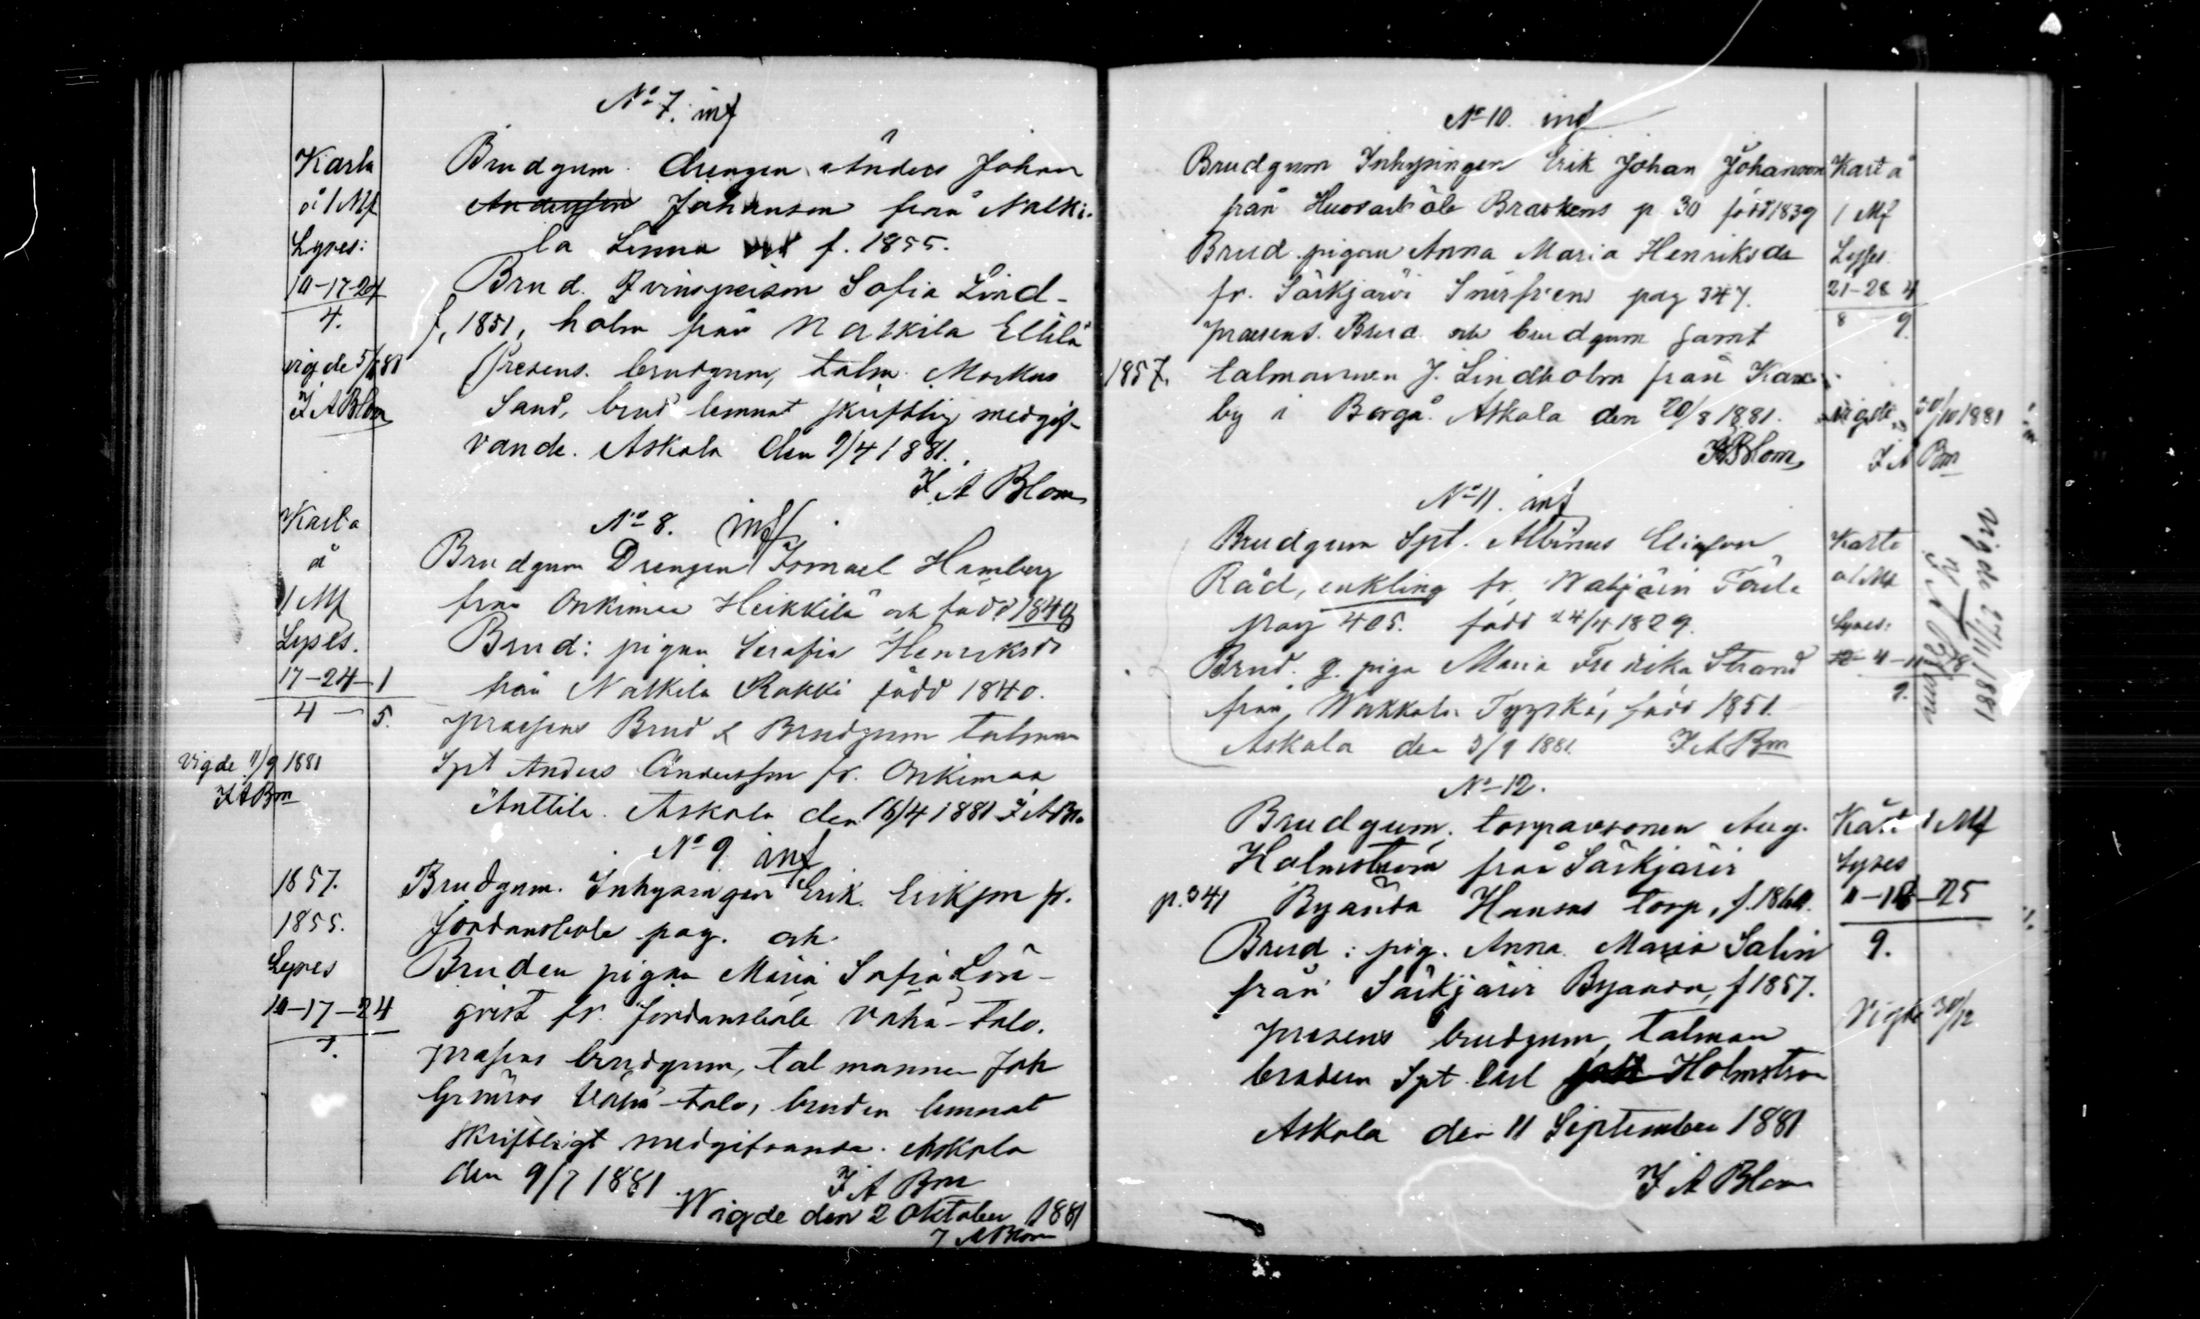 No 7. inf
Karta
à 1 Mf
Lyses:
10-17-24
4.
vigde 5/6 81
F A Blom
Brudgum. drengen Anders Johan
Andersson Johanson från Nalki-
la Linna f. 1855.
Brud. Qvinsperson Sofia Lind-
f. 1851, holm från Nalkila Ellilä
Presens. brudgum, talm. Markus
Sand, brud lemnat skriftlig medgif-
vande. Askola den 9/4 1881.
F. A Blom
No 8. inf
Karta
à
1 Mf
Lyses.
17-24-1
4 - 5.
Vigde 11/9 1881
F A Bm
Brudgum Drengen Ismael Hamberg
från Onkimaa Heikkilä och född 1849
Brud: pigan Serafia Henriksdr
från Nalkila Rakki född 1840.
praesens Brud & Brudgum talman
Spt Anders Andersson fr. Onkimaa
Anttila. Askola den 16/4 1881 F A Bm
No 9 inf
1857.
1855.
Lyses
10-17-24
7.
Brudgum. Inhysingen Erik Erikson fr.
Jordansböle pag. och
Bruden pigan Maria Sofia Lön-
qvist fr. Jordansböle Vähä-talo.
prasens brudgum, talmannen Joh
Grönros Vähä-talo, bruden lemnat
skriftligt medgifvande. Askola
den 9/7 1881 F A Bm
Wigde den 2 Oktober 1881
F A Blom
No 10. inf
Brudgum Inhysingen Erik Johan Johanson
från Huvarböle Braskens p. 30 född 1839
Brud pigan Anna Maria Henriksdr
fr. Särkjärvi Snirfvens pag 347.
praesens. Brud och brudgum samt
1857. talmannen J. Lindholm från Kar-
by i Borgå. Askola den 20/8 1881.
F A Blom
Karta à
1 Mf
Lyses
21-28 4
8 9
vigde 30/10 1881
F A Bm
No 11. inf
Brudgum Spt. Albinus Eliasson
Råd, enkling fr. Wahjärvi
pag 405. född 24/4 1829.
Brud. q. piga Maria Fredrika Strand
från Wakkola Tyyskä, född 1851.
Askola den 3/9 1881. F A Bm
Karta
à 1 Mf
Lyses:
4-11-18
9.
Vigde 27/11 1881
F A Blom
No 12.
Brudgum. torparsonen Aug.
Holmström från Särkjärvi
p. 341 Byända Hansas torp, f. 1860.
Brud: pig. Anna Maria Salin
från Särkjärvi Byända, f 1857.
presens brudgum, talman
brodern Spt. Carl Holmström
Askola den 11 September 1881
F A Blom
Kart 1 Mf
Lyses
11-18-25
9.
Vigde 30/12